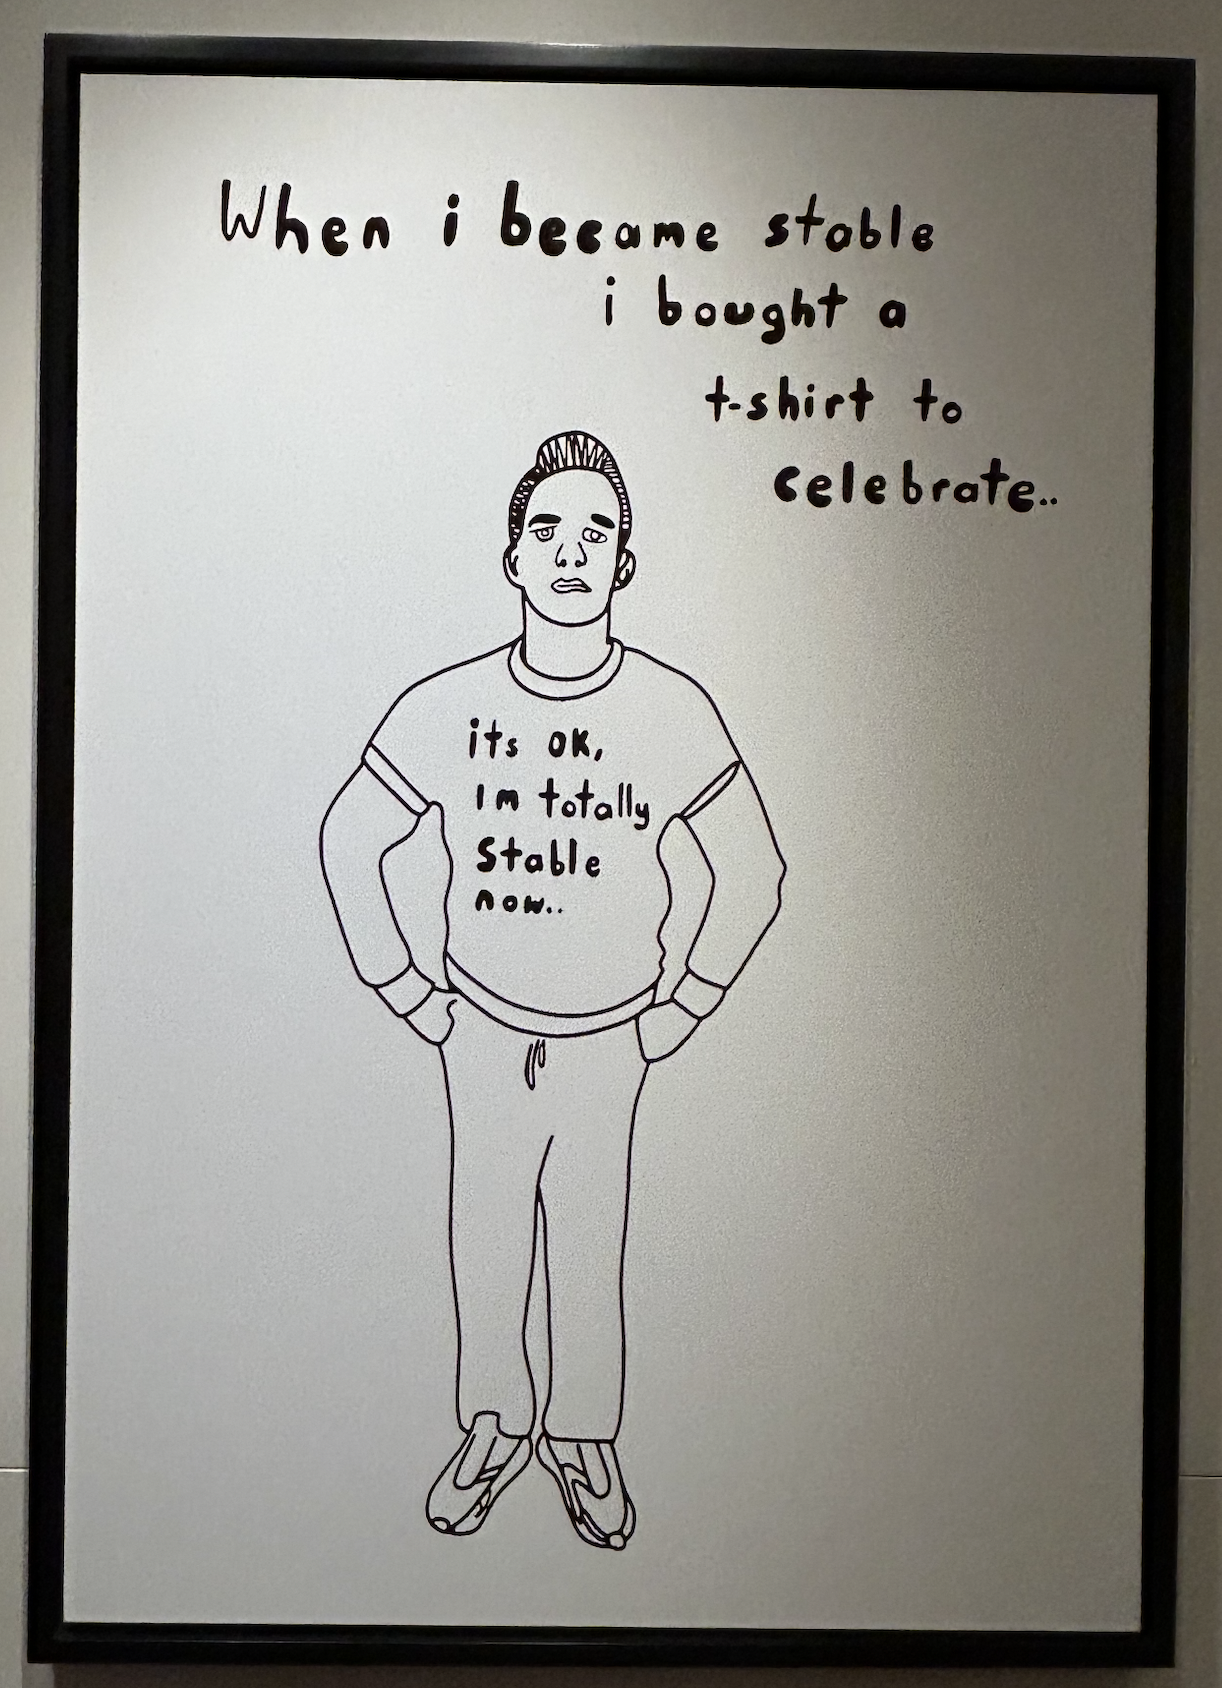 When i became stable
i bought a
t-shirt to
celebrate..
its OK,
Im totally
Stable
now..